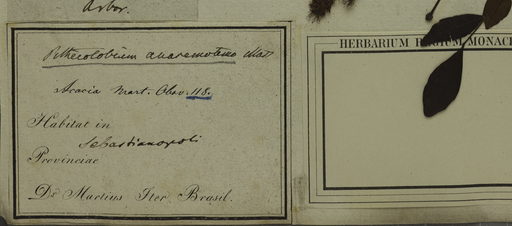 Arbor.
Pithecolobium avaremotemo Mart
Acacia Mart. Obsv. 118.
Habitat in
Sebastianopoli
Provinciae
Dr. Martius Iter Brasil.
HERBARIUM REGIUM MONAC